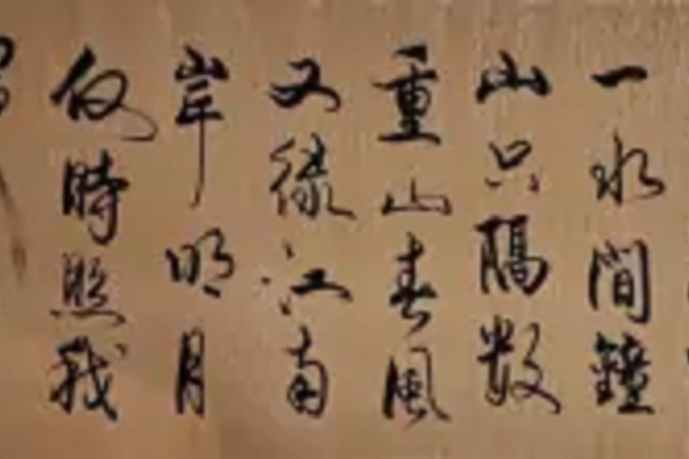 一水間鐘
山只隔數
重山春風
又綠江南
岸明月
何時照我